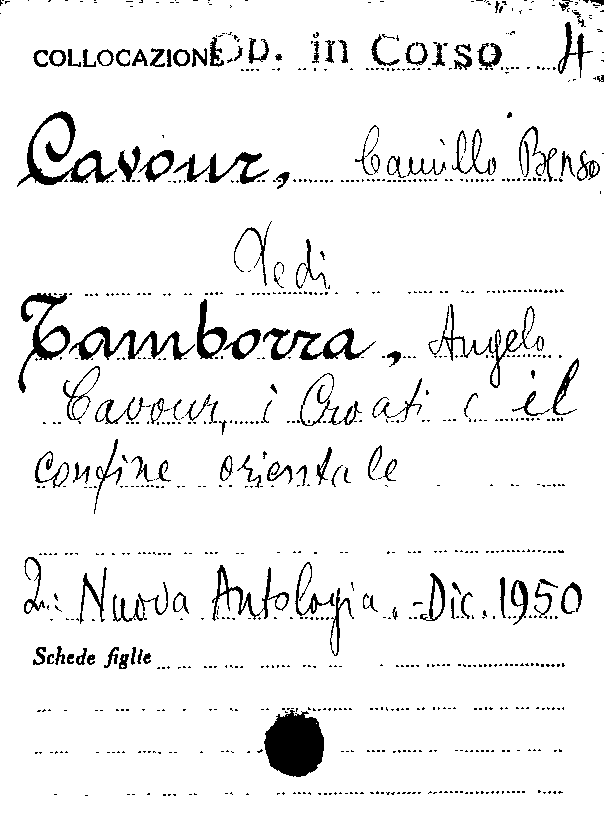 COLLOCAZIONE Op. in Corso 4
Cavour, Camillo Benso
Vedi
Tamborra, Angelo
Cavour, i Croati e il
confine orientale
In: Nuova Antologia. - Dic. 1950
Schede figlie